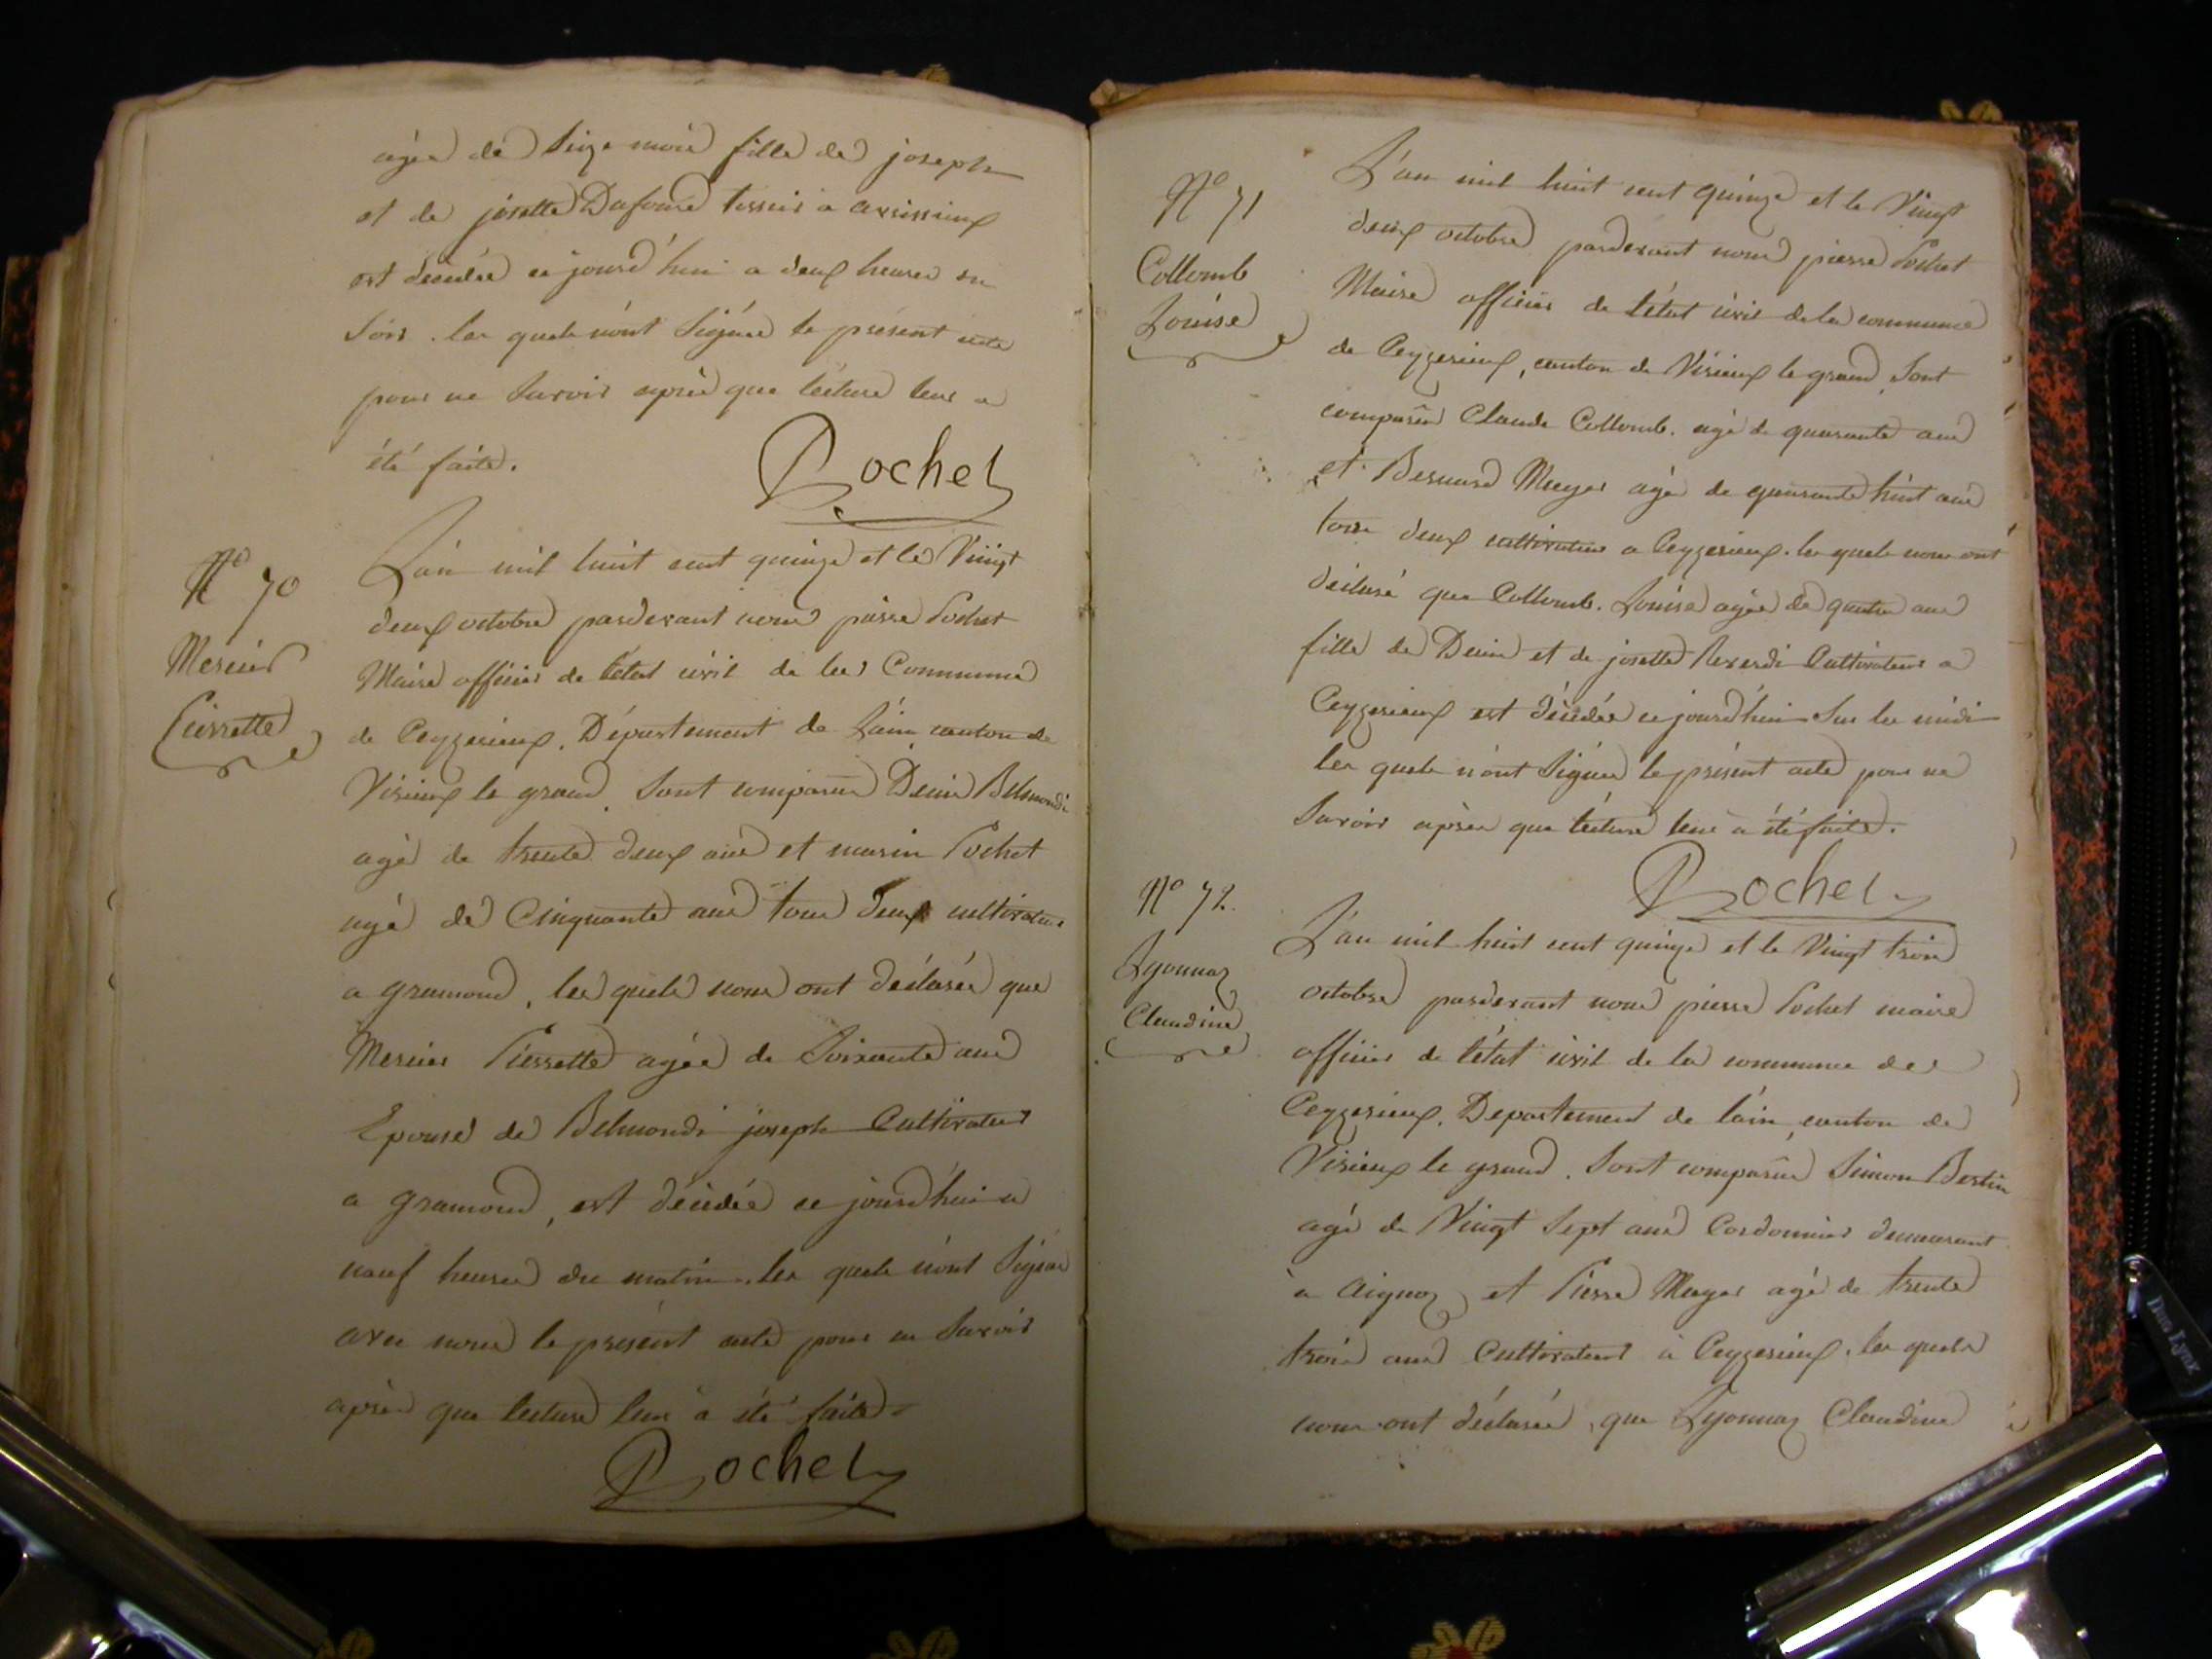 agée de Seize mois fille de joseph
et de josette Dufour tissier a avrissieux
est décédée ce jourd'hui a deux heures du
Soir. les quels n'ont Signés le présent acte
pour ne Savoir après que lecture leur a
été faite.
Pochet
N° 70
Mercier
Pierrette
L'an mil huit cent quinze et le Vingt
deux octobre pardevant nous pierre Pochet
Maire officier de l'état civil de la Commune
de Ceyzerieux, Département de L'ain canton de
Virieux le grand. Sont comparus Denis Belmondi
agé de trente deux ans et marin Pochet
agé de Cinquante ans tous deux cultivateurs
a gramond, les quels nous ont déclarés que
Mercier Pierrette agée de Soixante ans
Epouse de Belmondi joseph Cultivateur
a gramond, est décédée ce jourd'hui a
neuf heures du matin. les quels n'ont Signés
avec nous le présent acte pour ne Savoir
après que lecture leur a été faite
Pochet
N° 71
Collomb
Louise
L'an mil huit cent quinze et le Vingt
deux octobre pardevant nous pierre Pochet
Maire officier de l'état civil de la commune
de Ceyzerieux, canton de Virieux le grand Sont
comparus Claude Collomb. agé de quarante ans
et Bernard Muger agé de quarante huit ans
tous deux cultivateurs a Ceyzerieux. les quels nous ont
déclaré que Collomb. Louise agée de quatre ans
fille de Denis et de josette Reverdi Cultivateurs a
Ceyzerieux est décédée ce jourd'hui Sur les midi
les quels n'ont Signés le présent acte pour ne
Savoir après que lecture leur a été faite.
Pochet
N° 72.
Lyonnaz
Claudine
L'an mil huit cent quinze et le Vingt trois
octobre pardevant nous pierre Pochet maire
officier de l'état civil de la commune de
Ceyzerieux. Departement de l'ain, canton de
Virieux le grand. Sont comparus Simon Bertin
agé de Vingt Sept ans Cordonnier demeurant
à Aignoz et Pierre Muger agé de trente
trois ans Cultivateur à Ceyzerieux. les quels
nous ont déclarés, que Lyonnaz Claudine
Dun Lynx